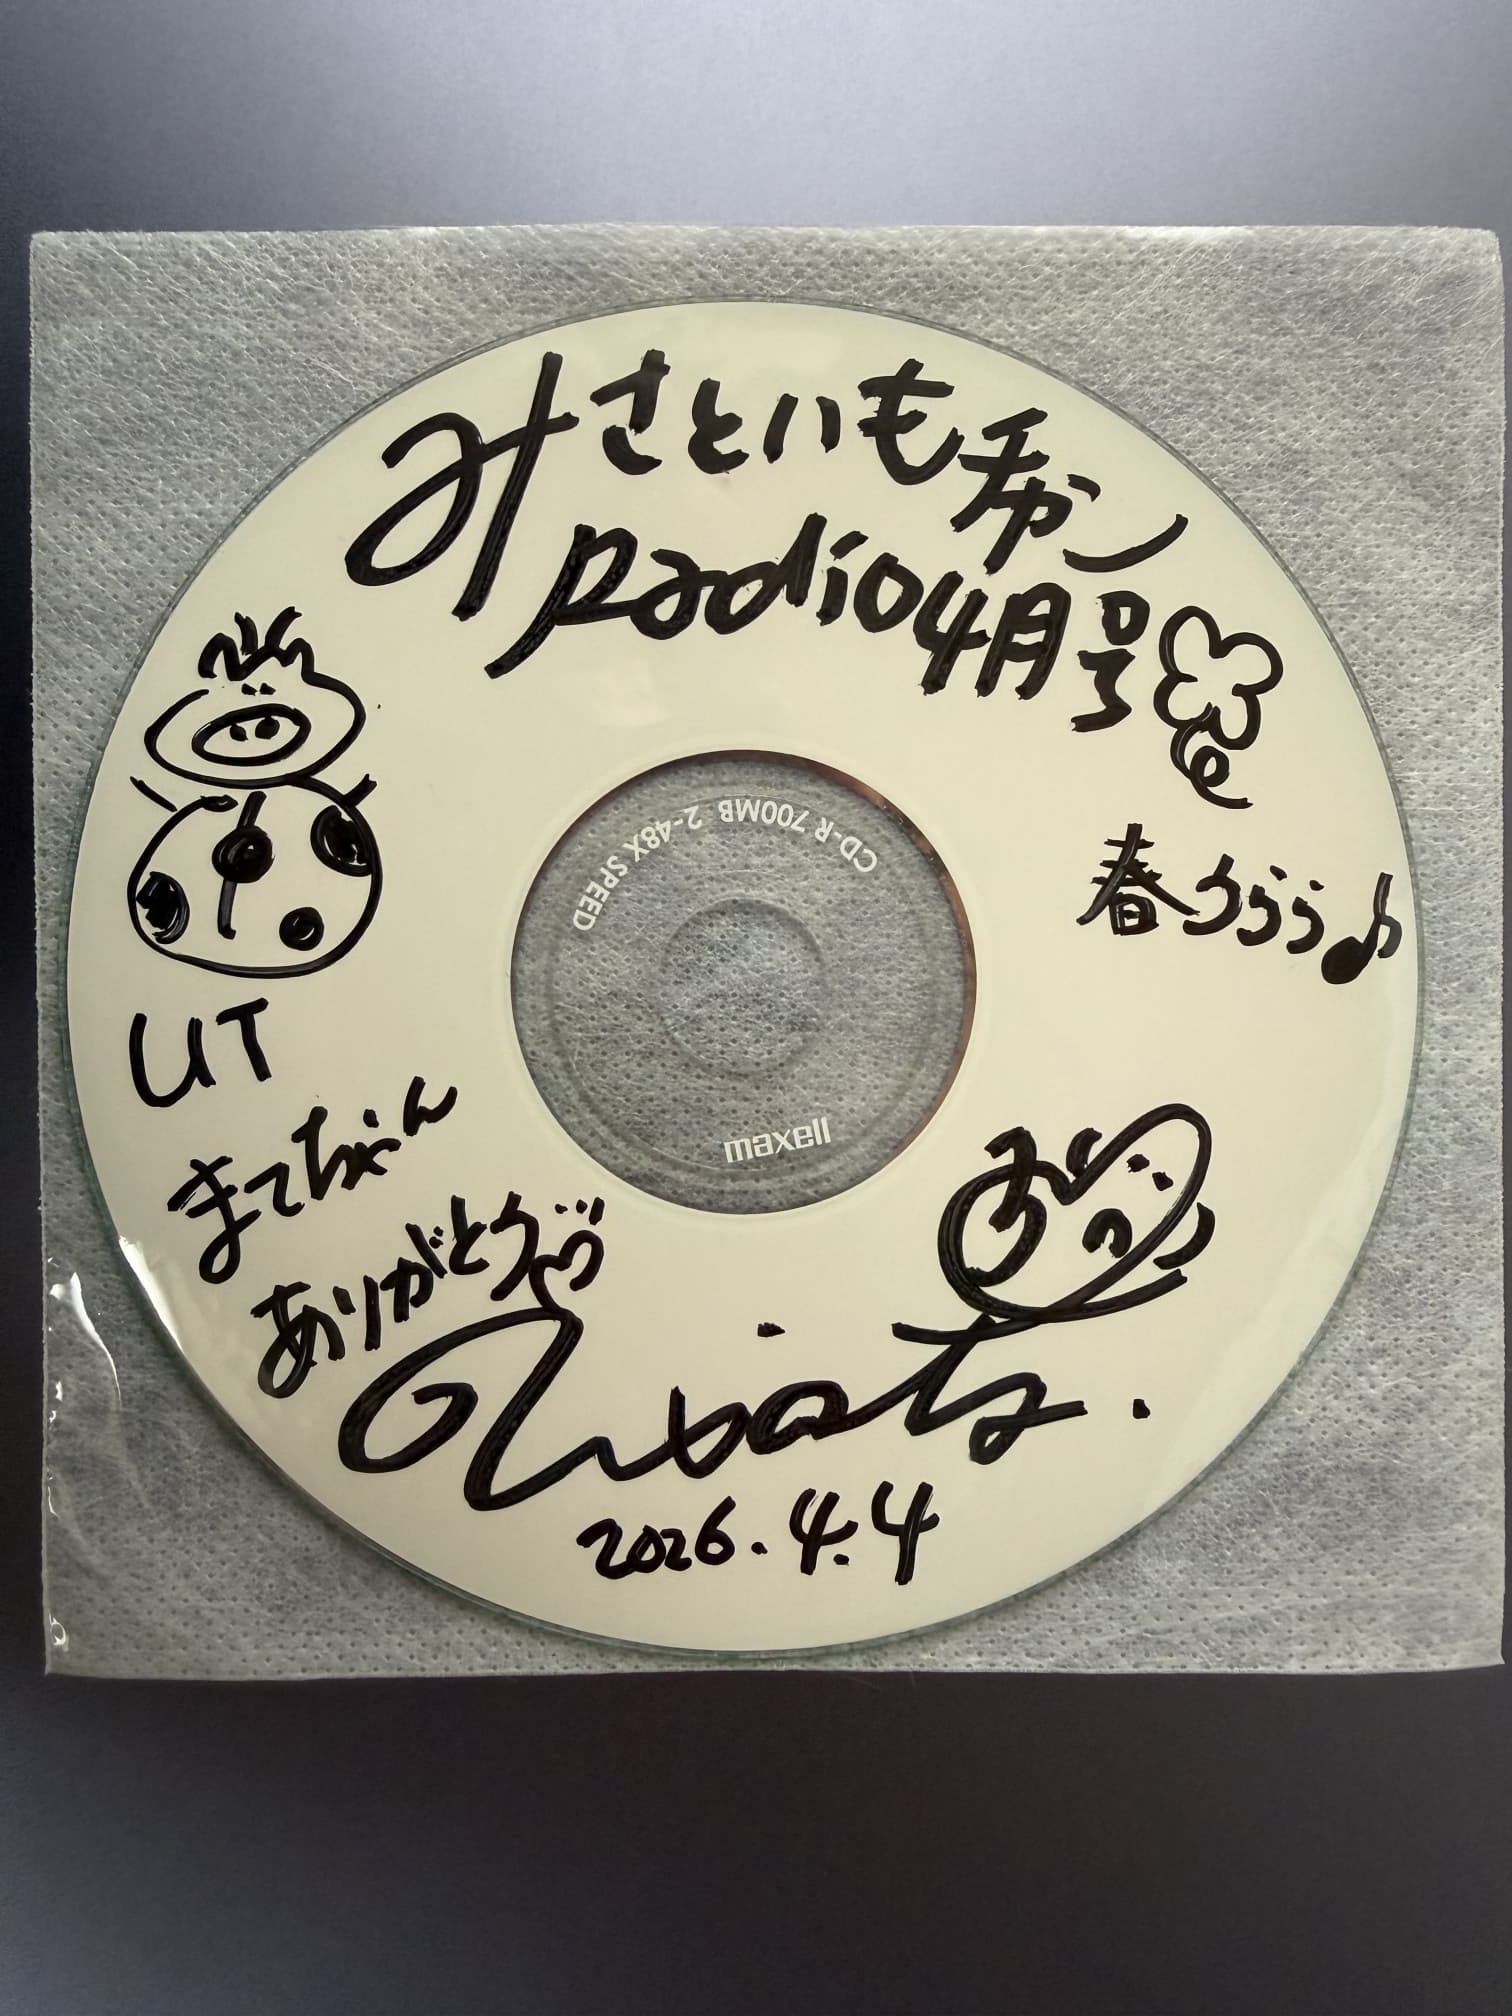 みさといもチャン
Radio4月号
春うらら♪
UT
まてちゃん
ありがとう
2026.4.4
CD-R 700MB 2-48X SPEED
maxell